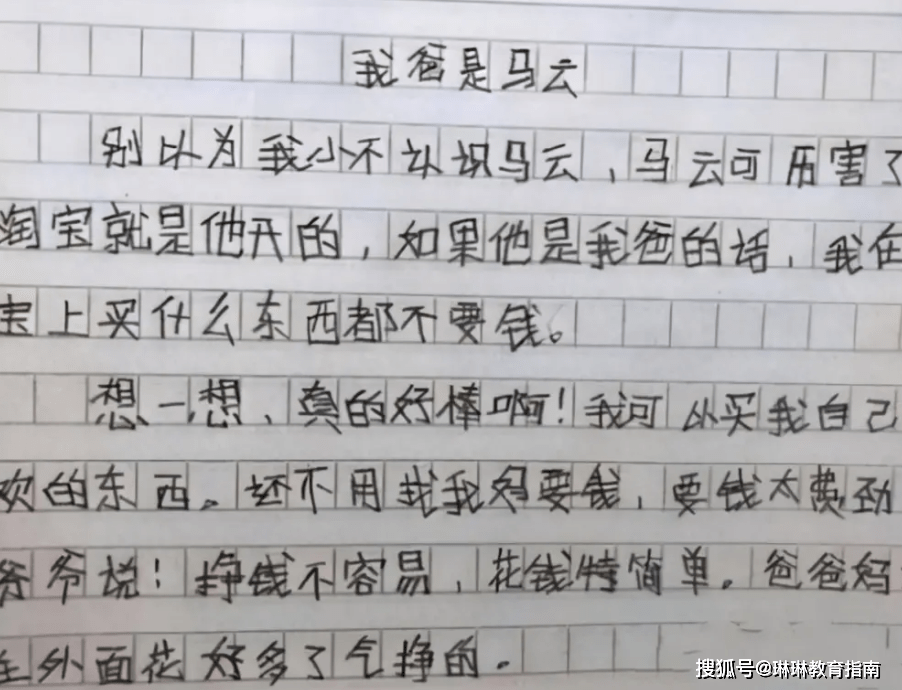 我爸是马云
别以为我小不认识马云，马云可历害了
淘宝就是他开的，如果他是我爸的话，我在
宝上买什么东西都不要钱。
想一想，真的好棒啊！我可以买我自己
欢的东西。还不用找我妈要钱，要钱太费劲
爷爷说！挣钱不容易，花钱特简单。爸爸妈
在外面花好多了气挣的。
搜狐号@琳琳教育指南